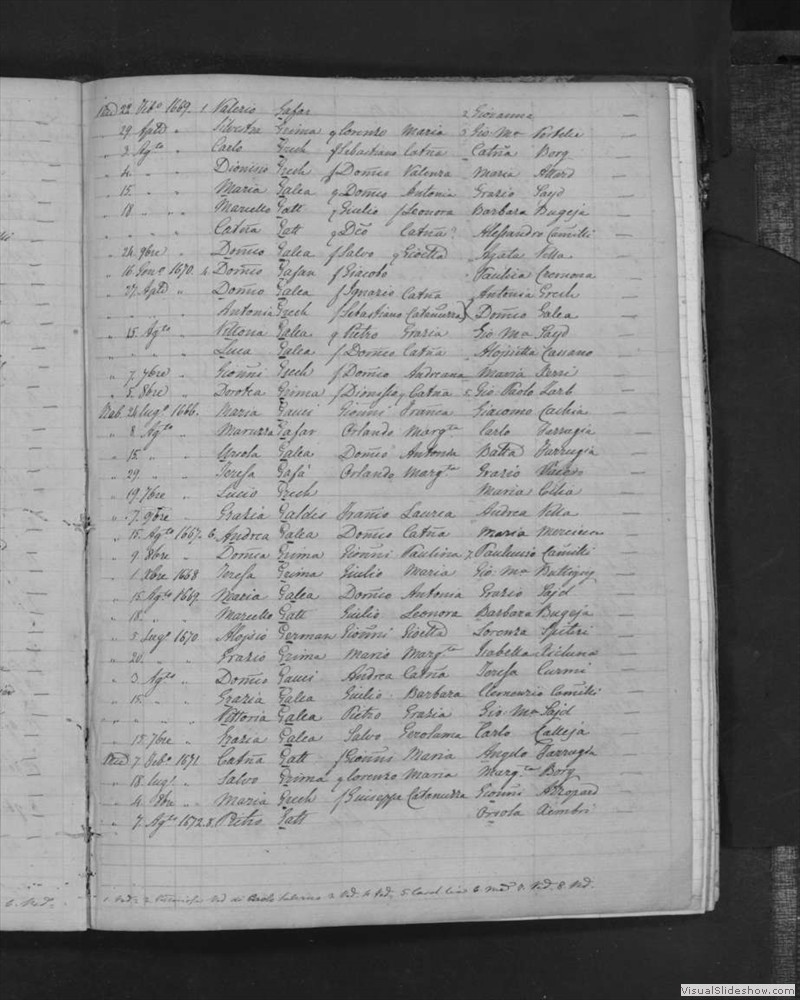 22 Feb° 1669. 1 Valerio Gafar 2 Giovanna
29 Aple " Silvestre Grima q Lorenzo Maria 3 Gio Ma
" 3 Ag.to " Carlo Grech f Sebastiano Catna Catna Borg
" 4 " " Dionisio Grech f Domco Valenza Maria Attard
" 15 " " Maria Galea q Domco Antonia Grazio Sajd
" 18 " " Marcello Gatt f Giulio f Leonora Barbara Bugeja
" " " " Catna Gatt q Dco Catna Alessandro Camilli
" 24 9bre " Domco Galea f Salvo q Gioetta Agata Vella
" 16 Gen° 1670. 4. Domco Gafan f Giacobo Paulica Cremona
" 27 Aple " Domco Galea f Ignazio Catna Antonia Grech
" " " Antonia Grech f Sebastiano Catanuzza Domco Galea
" 15 Ag.to " Vittoria Galea q Pietro Grazia Gio Ma Sajd
" " " " Luca Galea f Domco Catna Cassano
" 7 7bre " Gionni Grech f Domco Andreana Maria
" 5 8bre " Dorotea Grima f Dionisio q Catna 5 Gio Paolo Zarb
Rab. 24 Lug° 1666. Maria Gauci Gionni Franca Giacomo Cachia
" 8 Ag.to " Maruzza Gafar Orlando Marg.ta Carlo Farrugia
" 15 " " Ursola Galea Domco Antonia Batta Farrugia
" 29 " " Teresa Gafà Orlando Marg.ta Grazio
" 19 7bre " Lucio Grech Maria Cilia
" 7 9bre " Grazia Galdes Franco Laurea Andrea Vella
" 15 Ag.to 1667. 6. Andrea Galea Domco Catna Maria Mercieca
" 9 8bre " Domca Grima Gionni Paulina 7. Paulucio Camilli
" 1 Xbre 1668 Teresa Grima Giulio Maria Gio Ma Buttigieg
" 15 Ag.to 1669. Maria Galea Domco Antonia Grazio Sajd
" 18 " " Marcello Gatt Giulio Leonora Barbara Bugeja
" 5 Lug° 1670 Aloisio German Gionni Gioetta Lorenza Spiteri
" 20 " " Grazio Grima Mario Marg.ta Isabella Xicluna
" 3 Ag.to " Domco Gauci Andrea Catna Teresa Curmi
" 15 " " Grazia Galea Giulio Barbara Clemenzio Camilli
" " " " Vittoria Galea Pietro Grazia Gio Ma Sajd
" 15 7bre " Grazia Galea Salvo Gerolama Carlo Calleja
7 Feb° 1671 Catna Gatt f Gionni Maria Angelo Farrugia
" 18 Lug° " Salvo Grima q Lorenzo Maria Marg.ta Borg
" 4 8bre " Maria Grech f Giuseppe Catanuzza Gionni Azzopard
" 7 Ag.to 1672. 8. Pietro Gatt Orsola
1. Ved. 2. Ved di Paolo 3. Ved. 4. Ved. 5. 6. 7. Ved. 8. Ved.
6. Ved.
VisualSlideshow.com